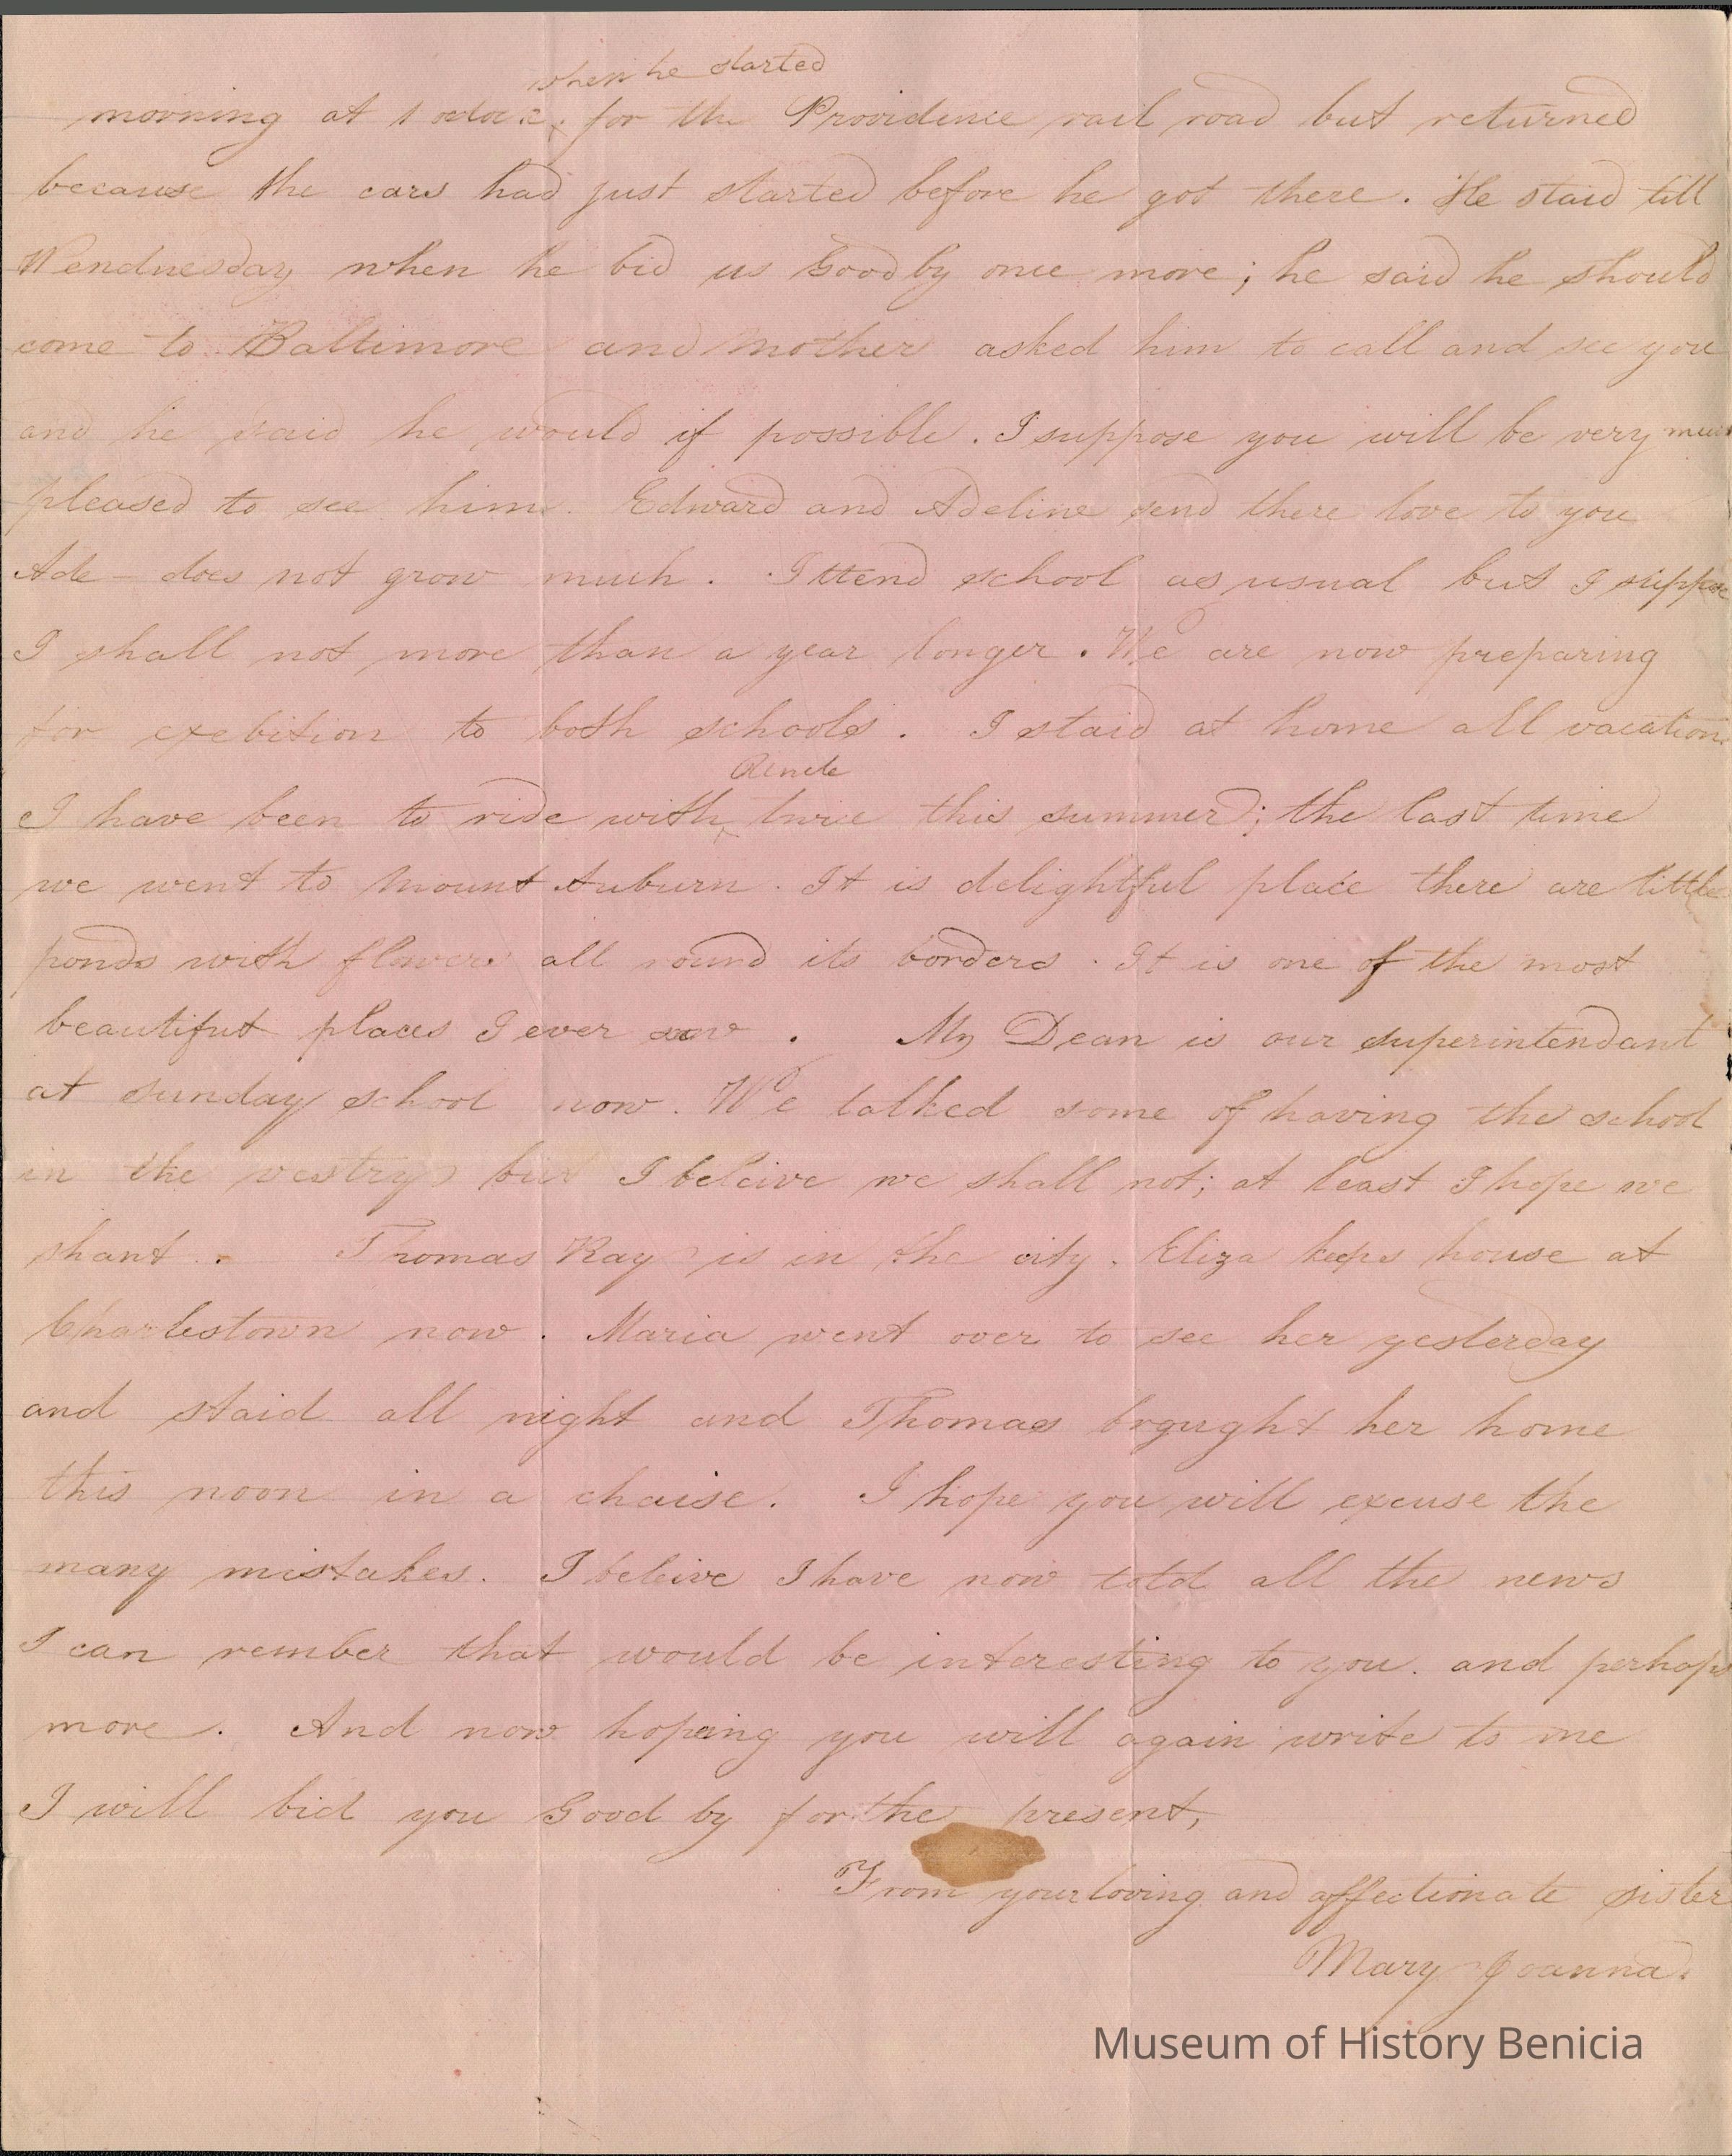 when he started
morning at 1 oclock for the Providence rail road but returned
because the cars had just started before he got there. He staid till
Wendnesday when he bid us Good by once more; he said he should
come to Baltimore and mother asked him to call and see you
and he said he would if possible. I suppose you will be very much
pleased to see him. Edward and Adeline send there love to you
Ade - does not grow much. I ttend school as usual but I suppose
I shall not more than a year longer. We are now preparing
for exebition to both schools. I staid at home all vacation
Uncle
I have been to ride with twice this summer; the last time
we went to Mount Auburn. It is delightful place there are little
ponds with flowers all round its borders. It is one of the most
beautifut places I ever saw. Mr Dean is our superintendant
at sunday school now. We talked some of having the school
in the vestry but I beleive we shall not; at least I hope we
shant. Thomas Ray is in the city. Eliza keeps house at
Charlestown now. Maria went over to see her yesterday
and staid all night and Thomas brought her home
this noon in a chaise. I hope you will excuse the
many mistakes. I beleive I have now told all the news
I can rember that would be interesting to you. and perhaps
more. And now hopeing you will again write to me
I will bid you Good by for the present,
From your loving and affectionate sister
Mary Joanna.
Museum of History Benicia